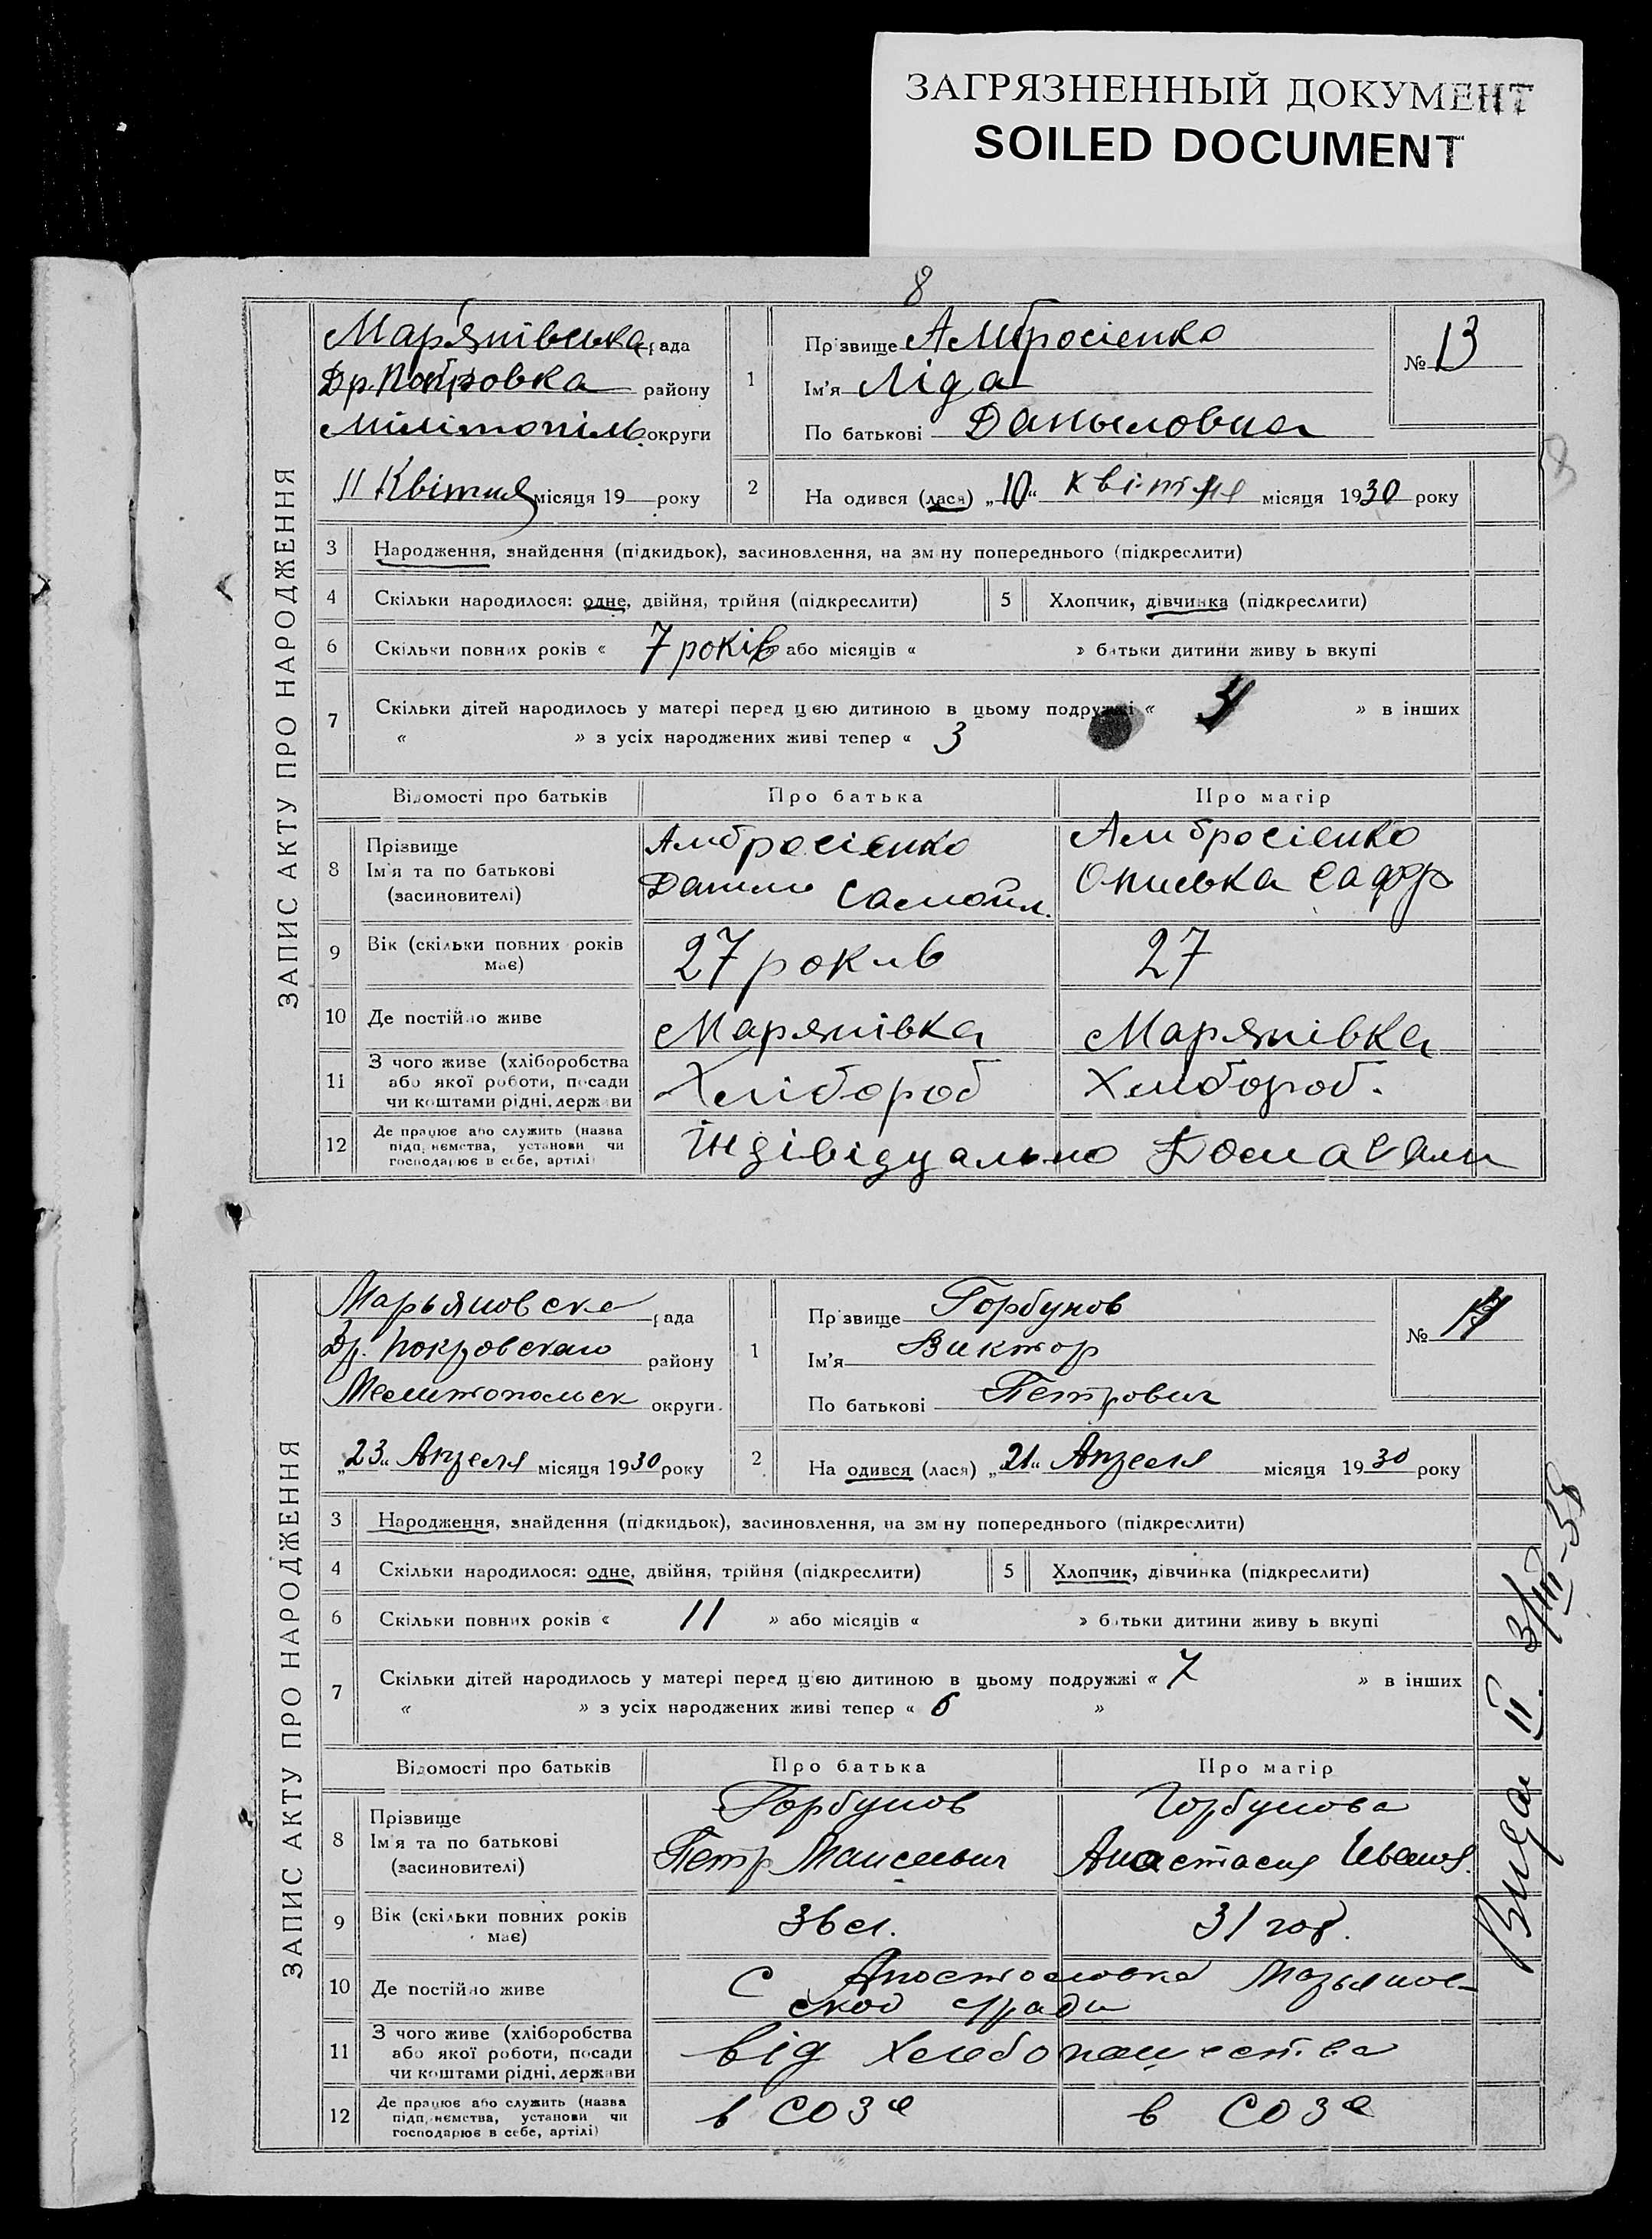 ЗАГРЯЗНЕННЫЙ ДОКУМЕНТ
SOILED DOCUMENT
8
ЗАПИС АКТУ ПРО НАРОДЖЕННЯ
Мар'янівська рада
Др. Покровка району
Мілітопіль округи
"11 Квітня місяця 19 року
1
Прізвище Амбросіенко
Ім'я Ліда
По батькові Даныловна
№ 13
2
На одився (лася) „10" квітня місяця 1930 року
8
3 Народження, знайдення (підкидьок), засиновлення, на зм ну попереднього (підкреслити)
4 Скільки народилося: одне, двійня, трійня (підкреслити)
5 Хлопчик, дівчинка (підкреслити)
6 Скільки повних років « 7 років або місяців « » батьки дитини живу ь вкупі
7 Скільки дітей народилось у матері перед цією дитиною в цьому подружжі « » в інших
« » з усіх народжених живі тепер « 3
Відомості про батьків Про батька Про матір
8 Прізвище Ім'я та по батькові (засиновителі)
Амбросіенко
Данило Самойл.
Амбросіенко
Описька
9 Вік (скільки повних років має) 27 років 27
10 Де постійно живе Марянівка Марянівка
11 З чого живе (хліборобства або якої роботи, посади чи коштами рідні, держави Хлібороб Хлібороб.
12 Де працює або служить (назва підприємства, установи чи господарює в себе, артілі) Індівідуально
ЗАПИС АКТУ ПРО НАРОДЖЕННЯ
Марьяновска рада
Др. Покровского району
Мелитопольск округи
„23" Апреля місяця 1930 року
1
Прізвище Горбунов
Ім'я Виктор
По батькові Петрович
№
2
На одився (лася) „21" Апреля місяця 1930 року
3 Народження, знайдення (підкидьок), засиновлення, на зм ну попереднього (підкреслити)
4 Скільки народилося: одне, двійня, трійня (підкреслити)
5 Хлопчик, дівчинка (підкреслити)
6 Скільки повних років « 11 » або місяців « » батьки дитини живу ь вкупі
7 Скільки дітей народилось у матері перед цією дитиною в цьому подружжі « 7 » в інших
« » з усіх народжених живі тепер « 6 »
Відомості про батьків Про батька Про матір
8 Прізвище Ім'я та по батькові (засиновителі)
Горбунов
Петр
Горбунова
Анастасия Иванов.
9 Вік (скільки повних років має) 36 31 год.
10 Де постійно живе С Апостоловка Марьянов-
ской
11 З чого живе (хліборобства або якої роботи, посади чи коштами рідні, держави від хлебопашества
12 Де працює або служить (назва підприємства, установи чи господарює в себе, артілі) в СОЗе в СОЗе
II. 3/III-58